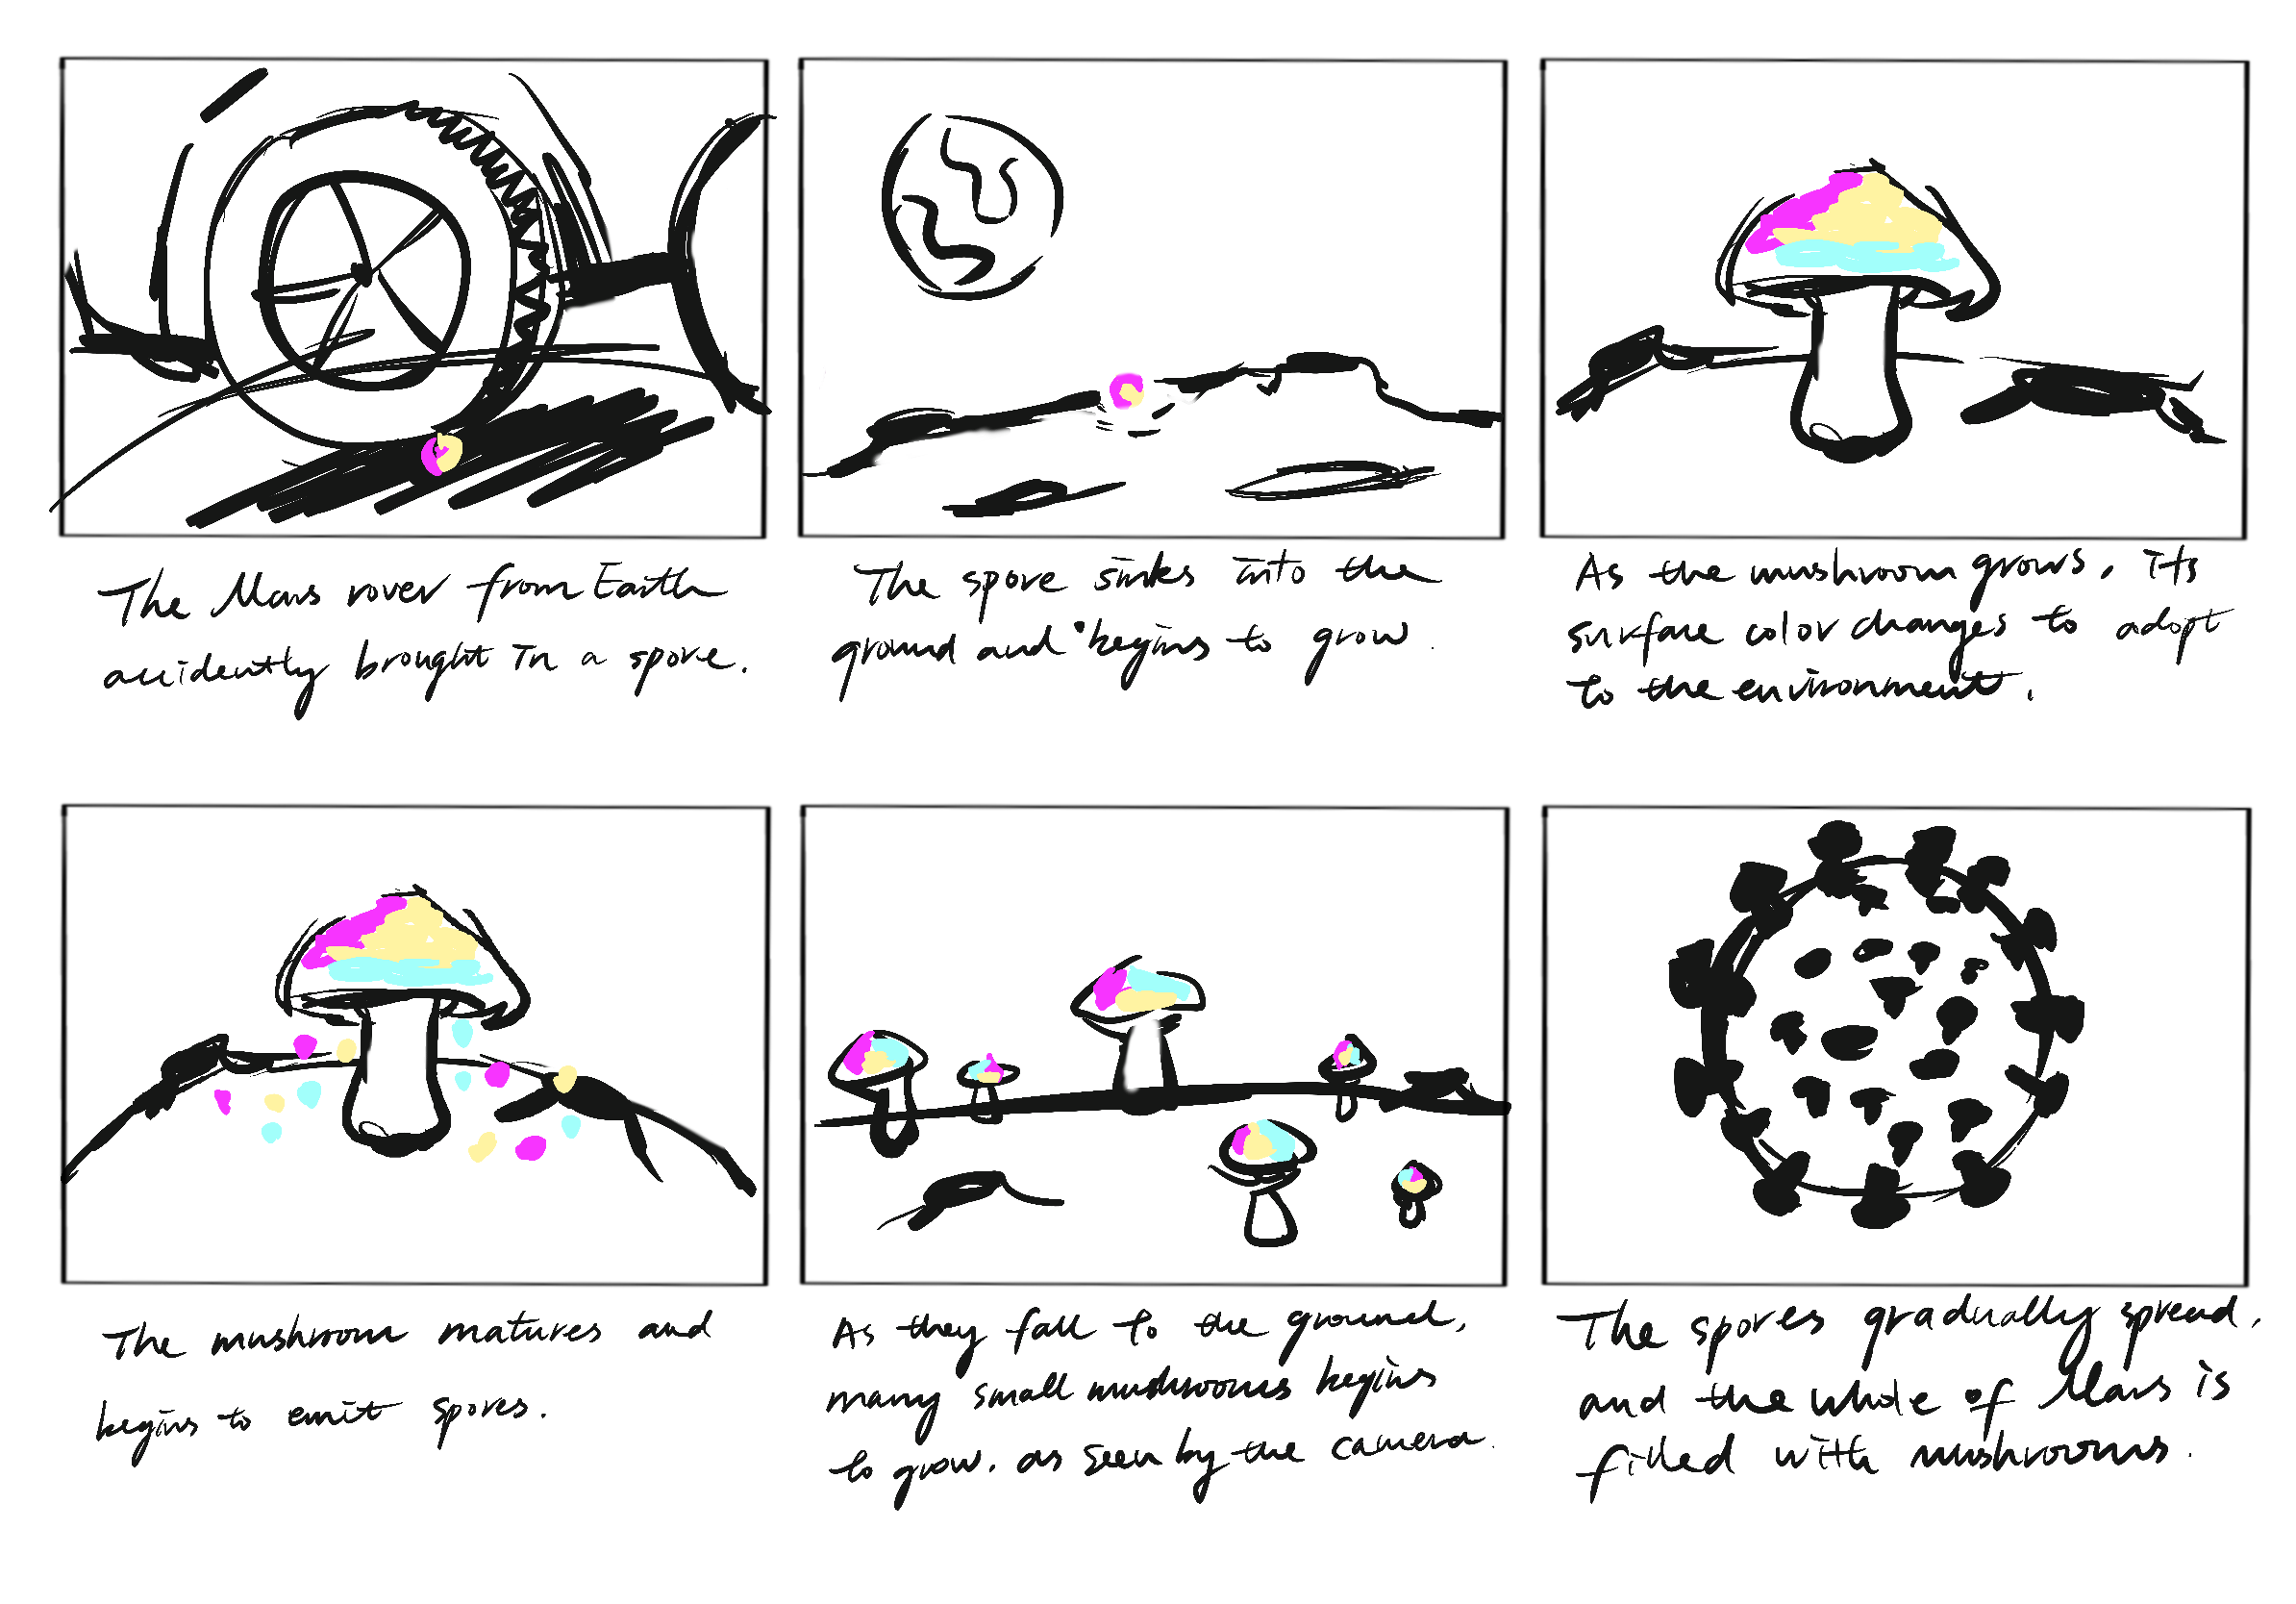 The Mars rover from Earth
accidently brought in a spore.
The spore sinks into the
ground and begins to grow.
As the mushroom grows, its
surface color changes to adopt
to the environment.
The mushroom matures and
begins to emit spores.
As they fall to the ground,
many small mushrooms begins
to grow. as seen by the camera.
The spores gradually spread,
and the whole of Mars is
filled with mushrooms.